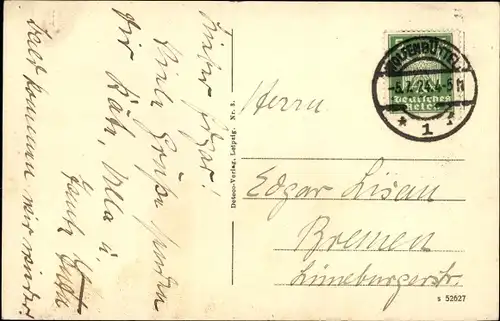 Lieber Edgar!
Viele Grüße senden
Dir Käte, Ulla u.
Tante
Bald kommen wir wieder
Deteco-Verlag, Leipzig. Nr. 3.
WOLFENBÜTTEL
-5.7.24.4-5 N
* 1 f
Deutsches
Reich
Herrn
Edgar Lisau
Bremen
Lüneburgerstr.
s 52627